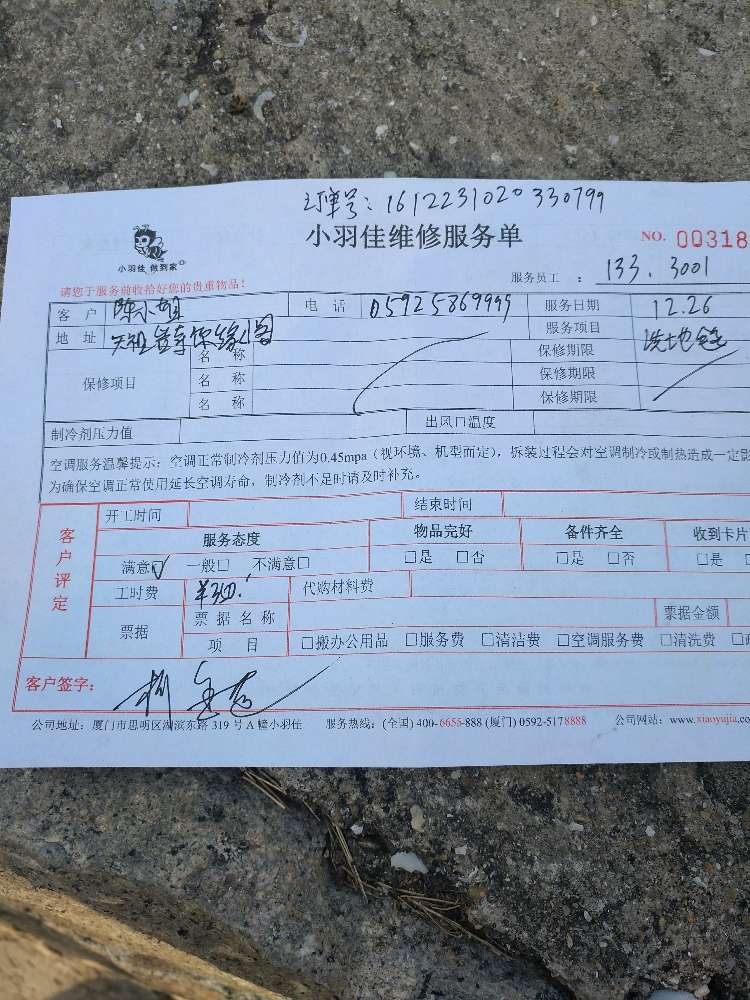 订单号：1612231020330799
小羽佳 做到家
小羽佳维修服务单
NO. 00318
请您于服务前收拾好您的贵重物品！
服务员工 ： 133.3001
客 户 陈小姐 电 话 05925869999 服务日期 12.26
地 址 服务项目 洗地毯
保修项目
名 称 保修期限
名 称 保修期限
名 称 保修期限
制冷剂压力值 出风口温度
空调服务温馨提示：空调正常制冷剂压力值为0.45mpa（视环境、机型而定），拆装过程会对空调制冷或制热造成一定影
为确保空调正常使用延长空调寿命，制冷剂不足时请及时补充。
客户评定
开工时间 结束时间
服务态度 物品完好 备件齐全 收到卡片
满意☑ 一般□ 不满意□ □是 □否 □是 □否 □是
工时费 代购材料费
票据 票据名称 票据金额
项 目 □搬办公用品 □服务费 □清洁费 □空调服务费 □清洗费
客户签字：
公司地址：厦门市思明区湖滨东路 319 号 A 幢小羽佳 服务热线：(全国) 400-6655-888 (厦门) 0592-5178888 公司网站：www.xiaoyujia.co